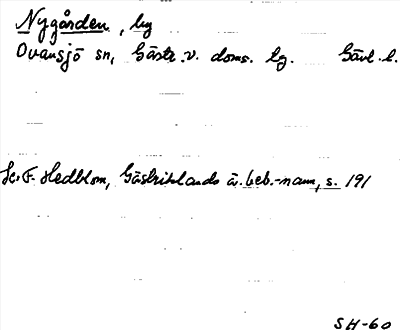 Nygården, by
Ovansjö sn, Gästr. v. doms. lg. Gävl. l.
Se F. Hedblom, Gästriklands ä. beb.-namn, s. 191
SH-60